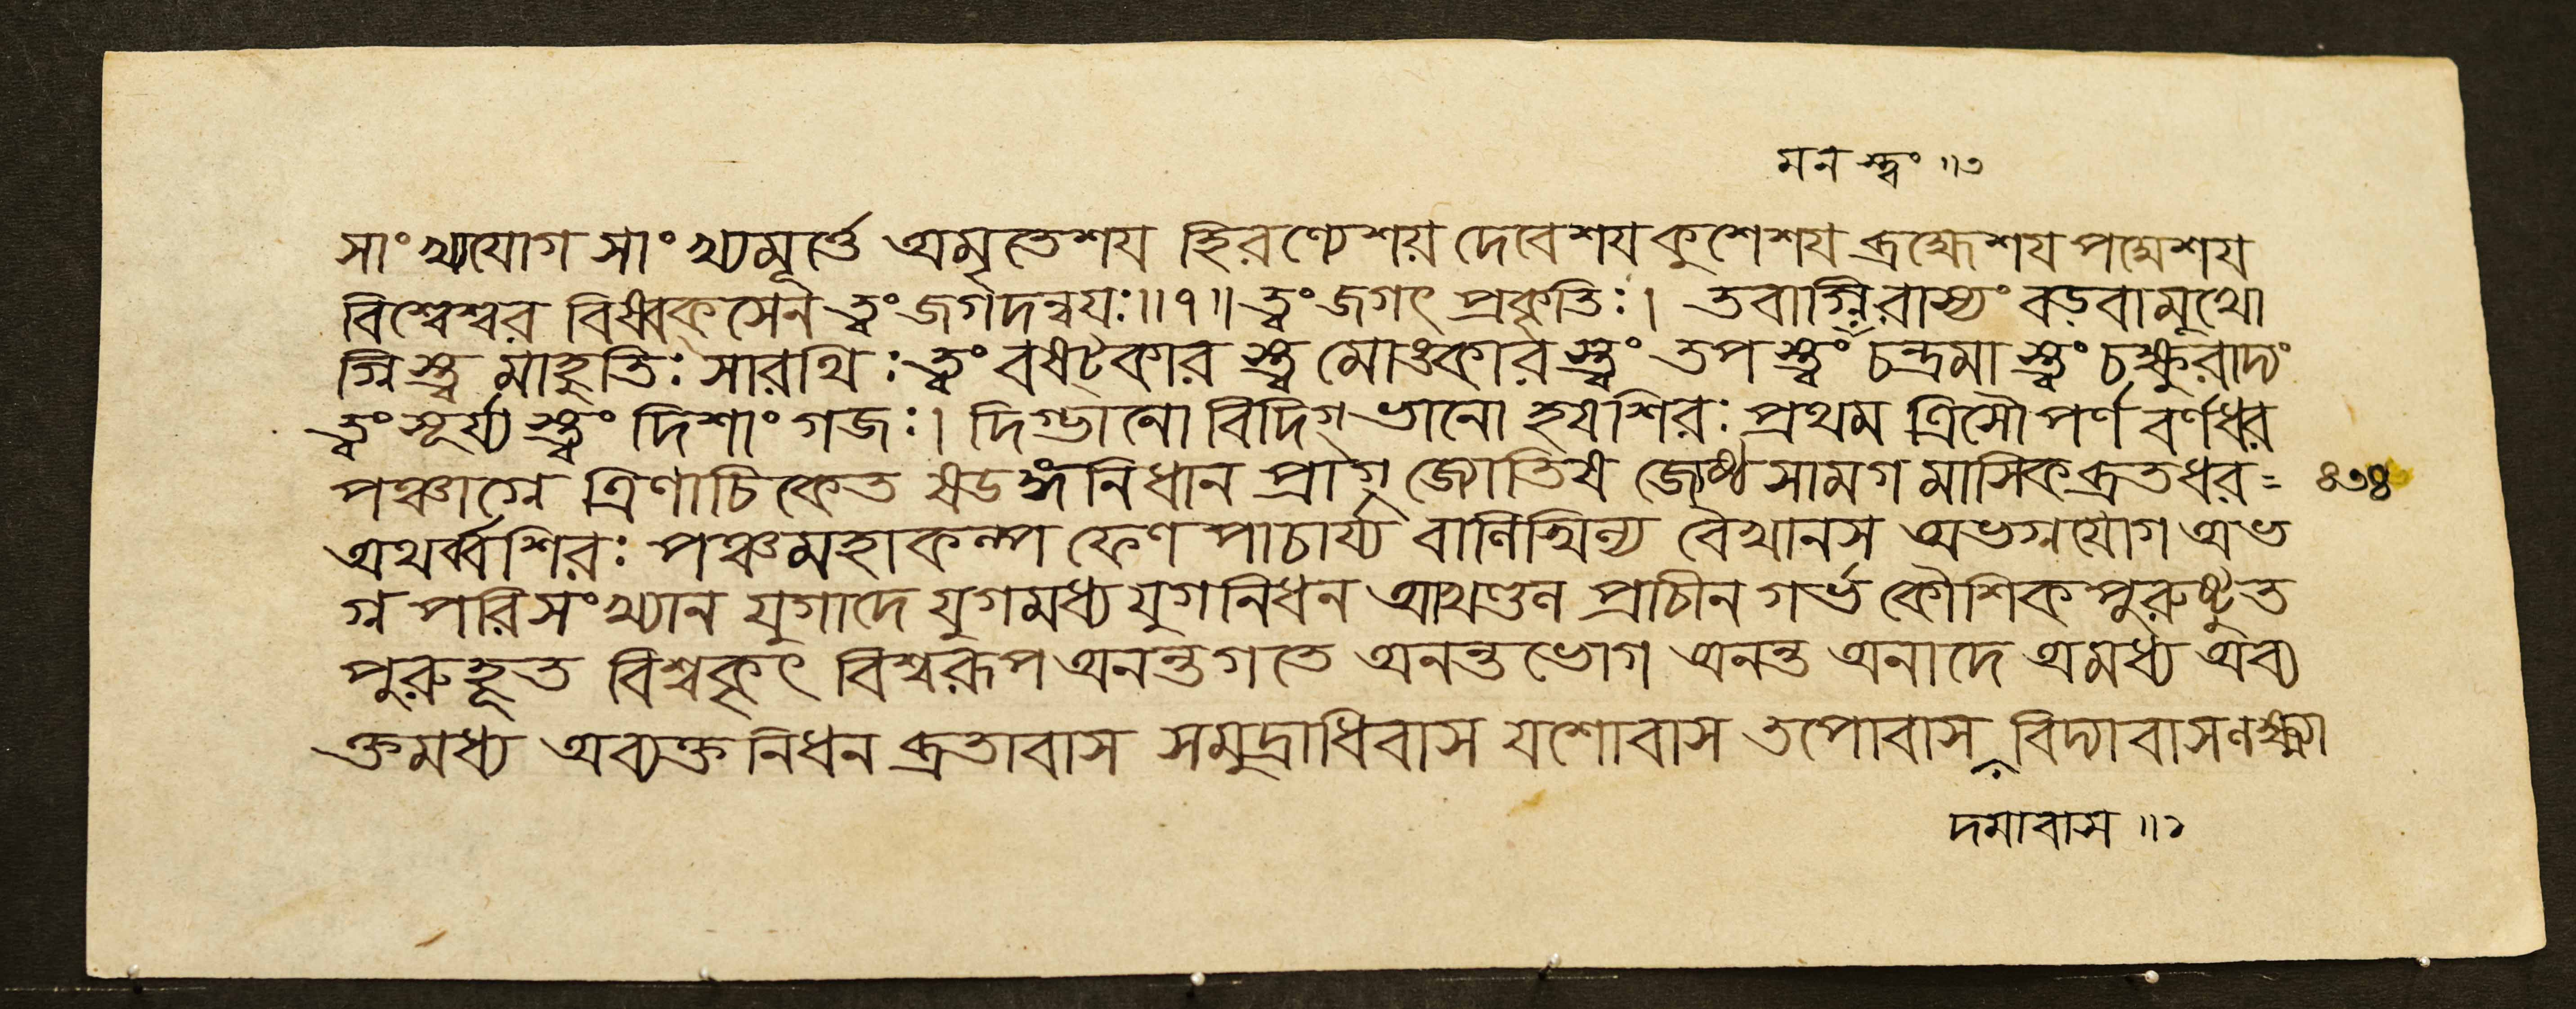 মন স্ত্বং ॥৩
সাংখ্যযোগ সাংখ্যমূর্ত্তে অমৃতেশয হিরণ্যেশয় দেবেশয কুশেশয ব্রহ্মেশয পদ্মেশয
বিশ্বেশ্বর বিষ্বক্সেন ত্বং জগদন্বযঃ॥৭॥ ত্বং জগৎ প্রকৃতিঃ। তবাগ্নিরাস্যং বড়বামুখো
গ্নিস্ত্ব মাহুতিঃ সারথিঃ ত্বং বষট্কার স্ত্ব মোঙকার স্ত্বং তপ স্ত্বং চন্দ্রমা স্ত্বং চক্ষুরাদ্যং
ত্বং সূর্য্য স্ত্বং দিশাং গজঃ। দিগ্ভানো বিদিগ্ ভানো হযশিরঃ প্রথম ত্রিসৌপর্ণ বর্ণধর
পঞ্চাগ্নে ত্রিণাচিকেত ষডঙ্গনিধান প্রাগ্ জ্যোতিষ জ্যেষ্ঠ সামগ মাসিকব্রতধর= ৪৩৪
অথর্ব্বশিরঃ পঞ্চমহাকল্প ফেণ পাচার্য্য বালিখিল্য বৈখানস অভগ্নযোগ অভ
গ্ন পরিসংখ্যান যুগাদে যুগমধ্য যুগনিধন আখণ্ডল প্রাচীন গর্ভ কৌশিক পুরুষ্টুত
পুরুহূত বিশ্বকৃৎ বিশ্বরূপ অনন্তগতে অনন্তভোগ অনন্ত অনাদে অমধ্য অব্য
ক্তমধ্য অব্যক্ত নিধন ব্রতাবাস সমুদ্রাধিবাস যশোবাস তপোবাস বিদ্যাবাস লক্ষ্ম্যা
দমাবাস ॥২